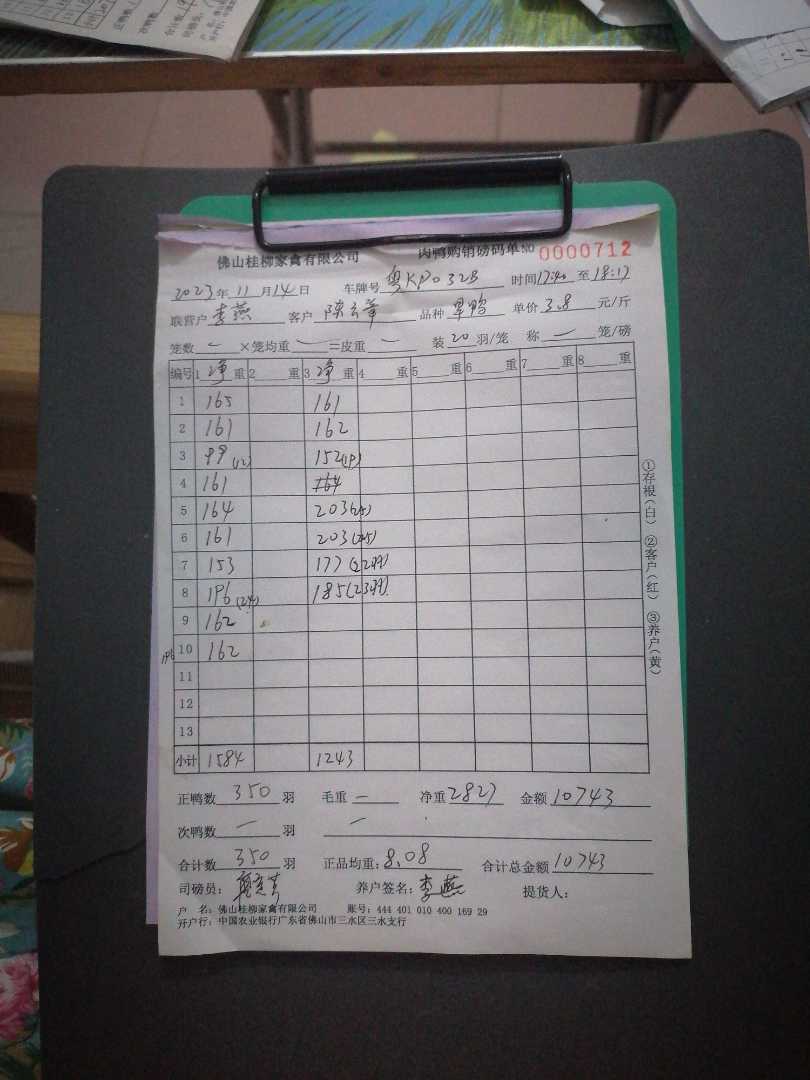 佛山桂柳家禽有限公司 肉鸭购销磅码单 NO 0000712
2023年11月14日 车牌号 粤KP0328 时间17:40至18:17
联营户 李燕 客户 品种 旱鸭 单价 3.8 元/斤
笼数 — ×笼均重 — =皮重 — 装 20 羽/笼 称 — 笼/磅
编号 1 净 重 2 重 3 净 重 4 重 5 重 6 重 7 重 8 重
1 165 161
2 161 162
3 99(12) 152(19)
4 161 164
5 164 203(25)
6 161 203(25)
7 153 177(22羽)
8 196(24) 185(23羽)
9 162
10 162
11
12
13
小计 1584 1243
正鸭数 350 羽 毛重 — 净重 2827 金额 10743
次鸭数 — 羽 —
合计数 350 羽 正品均重: 8.08 合计总金额 10743
司磅员: 养户签名: 李燕 提货人:
户 名: 佛山桂柳家禽有限公司 账号: 444 401 010 400 169 29
开户行: 中国农业银行广东省佛山市三水区三水支行
①存根(白) ②客户(红) ③养户(黄)